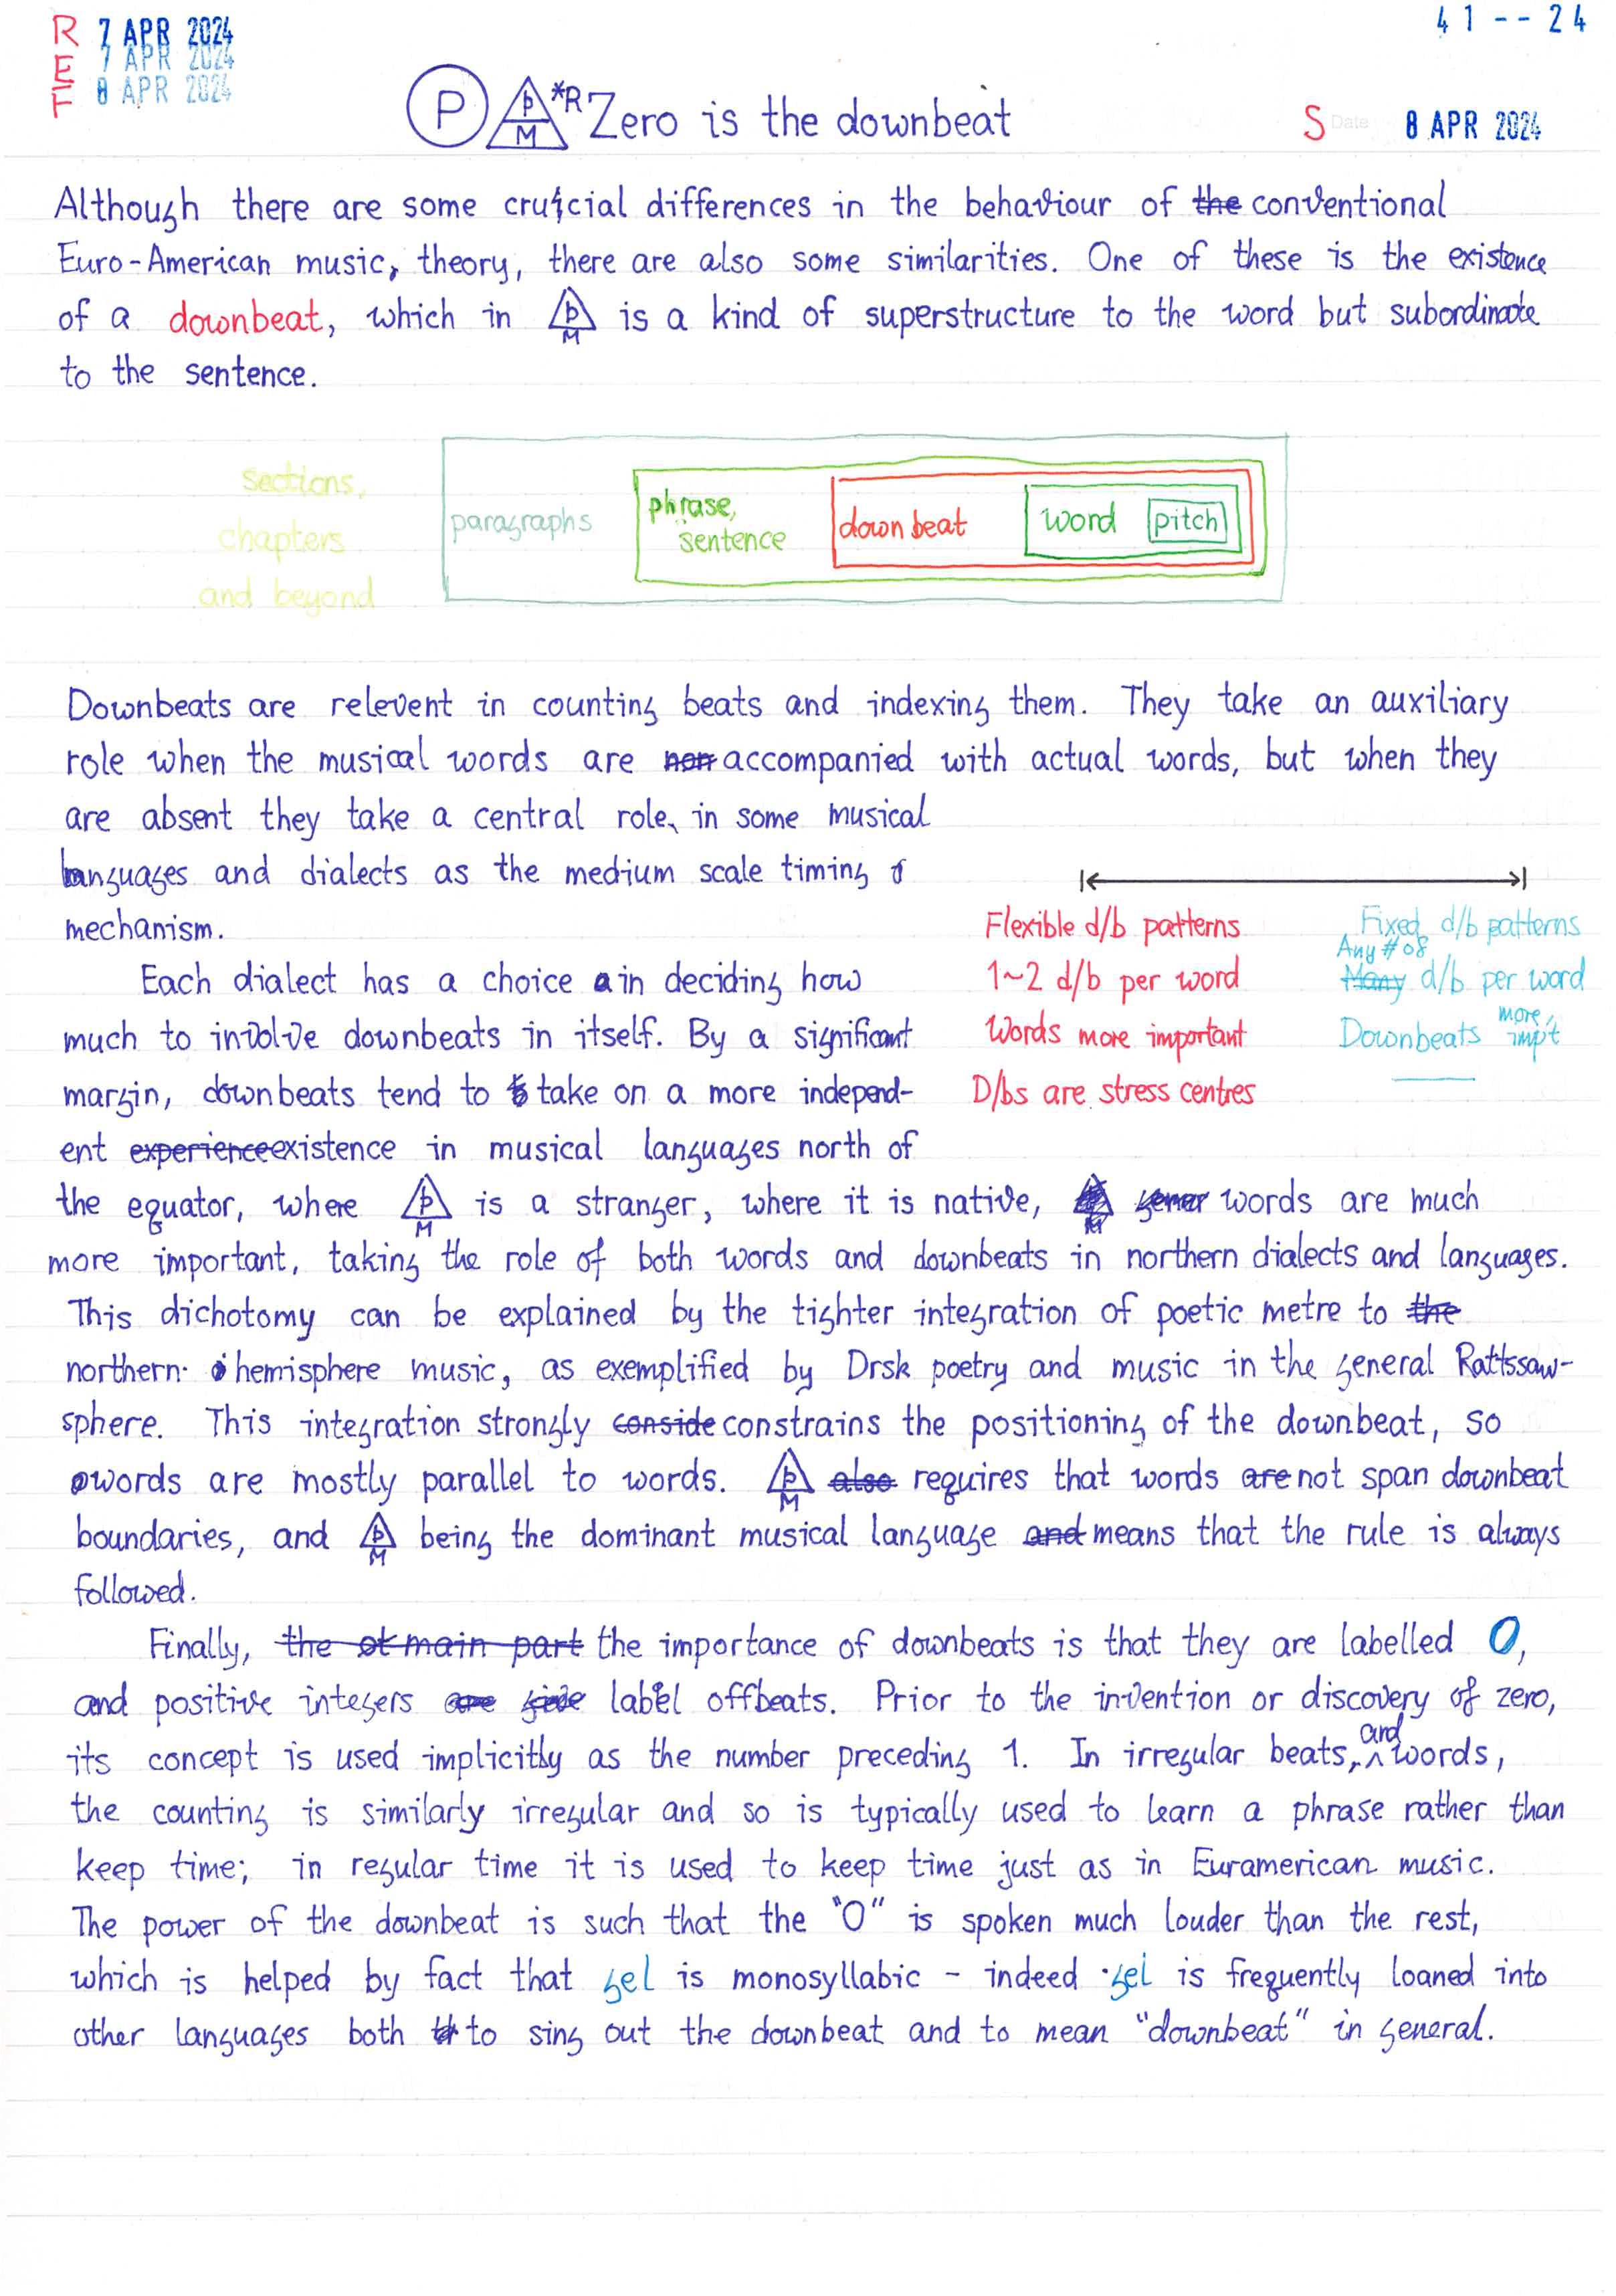 REF
7 APR 2024
7 APR 2024
8 APR 2024
41--24
P þ M *R Zero is the downbeat
S Date 8 APR 2024
Although there are some crucial differences in the behaviour of the conventional
Euro-American music, theory, there are also some similarities. One of these is the existence
of a downbeat, which in þ M is a kind of superstructure to the word but subordinate
to the sentence.
sections,
chapters
and beyond
paragraphs
phrase,
sentence
downbeat
word
pitch
Downbeats are relevent in counting beats and indexing them. They take an auxiliary
role when the musical words are non accompanied with actual words, but when they
are absent they take a central role, in some musical
languages and dialects as the medium scale timing
mechanism.
Each dialect has a choice in deciding how
much to involve downbeats in itself. By a significant
margin, downbeats tend to take on a more independ-
ent experience existence in musical languages north of
Flexible d/b patterns
1~2 d/b per word
Words more important
D/bs are stress centres
Fixed d/b patterns
Any # of
Many d/b per word
Downbeats more imp't
the equator, where þ M is a stranger, where it is native, words are much
more important, taking the role of both words and downbeats in northern dialects and languages.
This dichotomy can be explained by the tighter integration of poetic metre to the
northern hemisphere music, as exemplified by Drsk poetry and music in the general Rattssaw-
sphere. This integration strongly conside constrains the positioning of the downbeat, so
words are mostly parallel to words. þ M also requires that words are not span downbeat
boundaries, and þ M being the dominant musical language and means that the rule is always
followed.
Finally, the ot main part the importance of downbeats is that they are labelled 0,
and positive integers are give label offbeats. Prior to the invention or discovery of zero,
its concept is used implicitly as the number preceding 1. In irregular beats, and words,
the counting is similarly irregular and so is typically used to learn a phrase rather than
keep time; in regular time it is used to keep time just as in Euramerican music.
The power of the downbeat is such that the "0" is spoken much louder than the rest,
which is helped by fact that gel is monosyllabic - indeed gel is frequently loaned into
other languages both to sing out the downbeat and to mean "downbeat" in general.